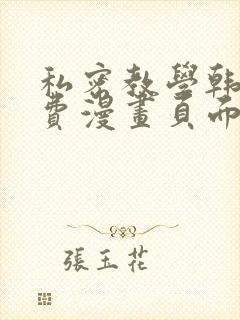 私密教學韓
費漫畫頁而
張玉花